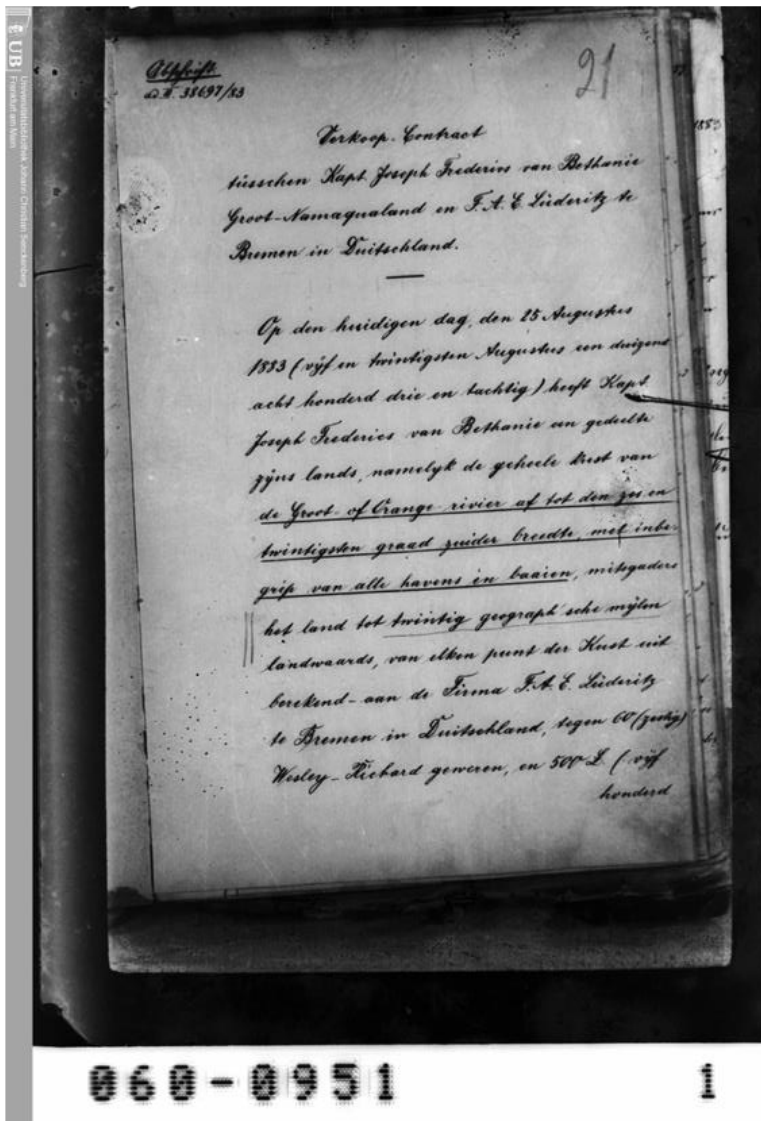 UB
Universitätsbibliothek Johann Christian Senckenberg
Frankfurt am Main
Abschrift
38697/83
21
Verkoop-Contract
tusschen Kapt Joseph Frederics van Bethanie
Groot-Namaqualand en F. A. E Lüderitz te
Bremen in Duitschland.
Op den huidigen dag, den 25 Augustus
1883 (vÿf en twintigsten Augustus een duizend
acht honderd drie en tachtig) heeft Kapt
Joseph Frederics van Bethanie een gedeelte
zÿns lands, namelyk de geheele Kust van
de Groot- of Orange rivier af tot den zes en
twintigsten graad zuider breedte, met inbe-
grip van alle havens in baaien, mitsgaders
het land tot twintig geograph'sche mÿlen
landwaards, van elken punt der Kust uit
berekend - aan de Firma F. A. E. Lüderitz
te Bremen in Duitschland, tegen 60 (zestig)
Wesley-Richard geweren, en 500 £ (vÿf
honderd
1883
060-0951
1